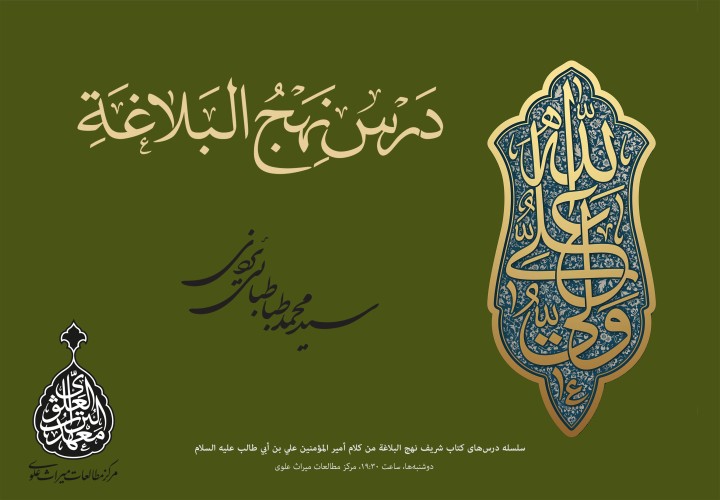 دَرْس نَهْجُ البَلاغَةِ
علي ولي الله
سید محمد طباطبائی یزدی
معهد التراث العلوي
مرکز مطالعات میراث علوی
سلسله درس‌های کتاب شریف نهج البلاغة من كلام أمير المؤمنين علي بن أبي طالب عليه السلام
دوشنبه‌ها، ساعت ۱۹:۳۰، مرکز مطالعات میراث علوی